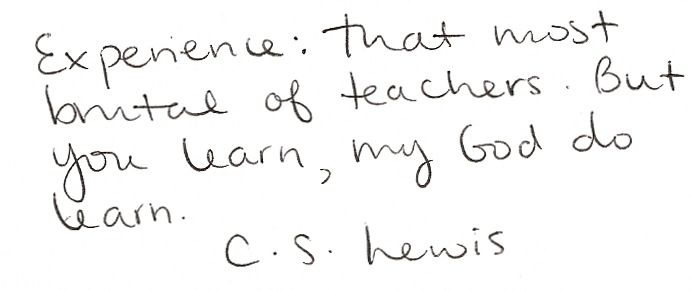 Experience: that most
brutal of teachers. But
you learn, my God do
learn.
C.S. Lewis